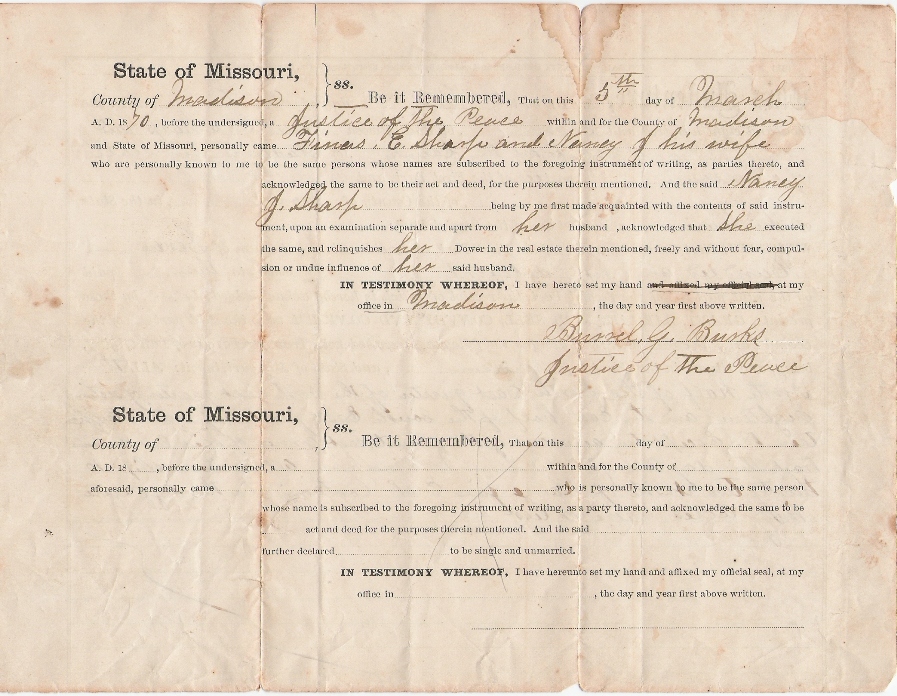 State of Missouri,
County of Madison } ss. Be it Remembered, That on this 5th day of March
A. D. 1870, before the undersigned, a Justice of the Peace within and for the County of Madison
and State of Missouri, personally came Finas. E. Sharp and Nancy J his wife
who are personally known to me to be the same persons whose names are subscribed to the foregoing instrument of writing, as parties thereto, and
acknowledged the same to be their act and deed, for the purposes therein mentioned. And the said Nancy
J. Sharp being by me first made acquainted with the contents of said instru-
ment, upon an examination separate and apart from her husband, acknowledged that She executed
the same, and relinquishes her Dower in the real estate therein mentioned, freely and without fear, compul-
sion or undue influence of her said husband.
IN TESTIMONY WHEREOF, I have hereto set my hand and affixed my official seal, at my
office in Madison, the day and year first above written.
Burrel. G. Burks
Justice of the Peace
State of Missouri,
County of } ss. Be it Remembered, That on this day of
A. D. 18 , before the undersigned, a within and for the County of
aforesaid, personally came who is personally known to me to be the same person
whose name is subscribed to the foregoing instrument of writing, as a party thereto, and acknowledged the same to be
act and deed for the purposes therein mentioned. And the said
further declared to be single and unmarried.
IN TESTIMONY WHEREOF, I have hereunto set my hand and affixed my official seal, at my
office in , the day and year first above written.